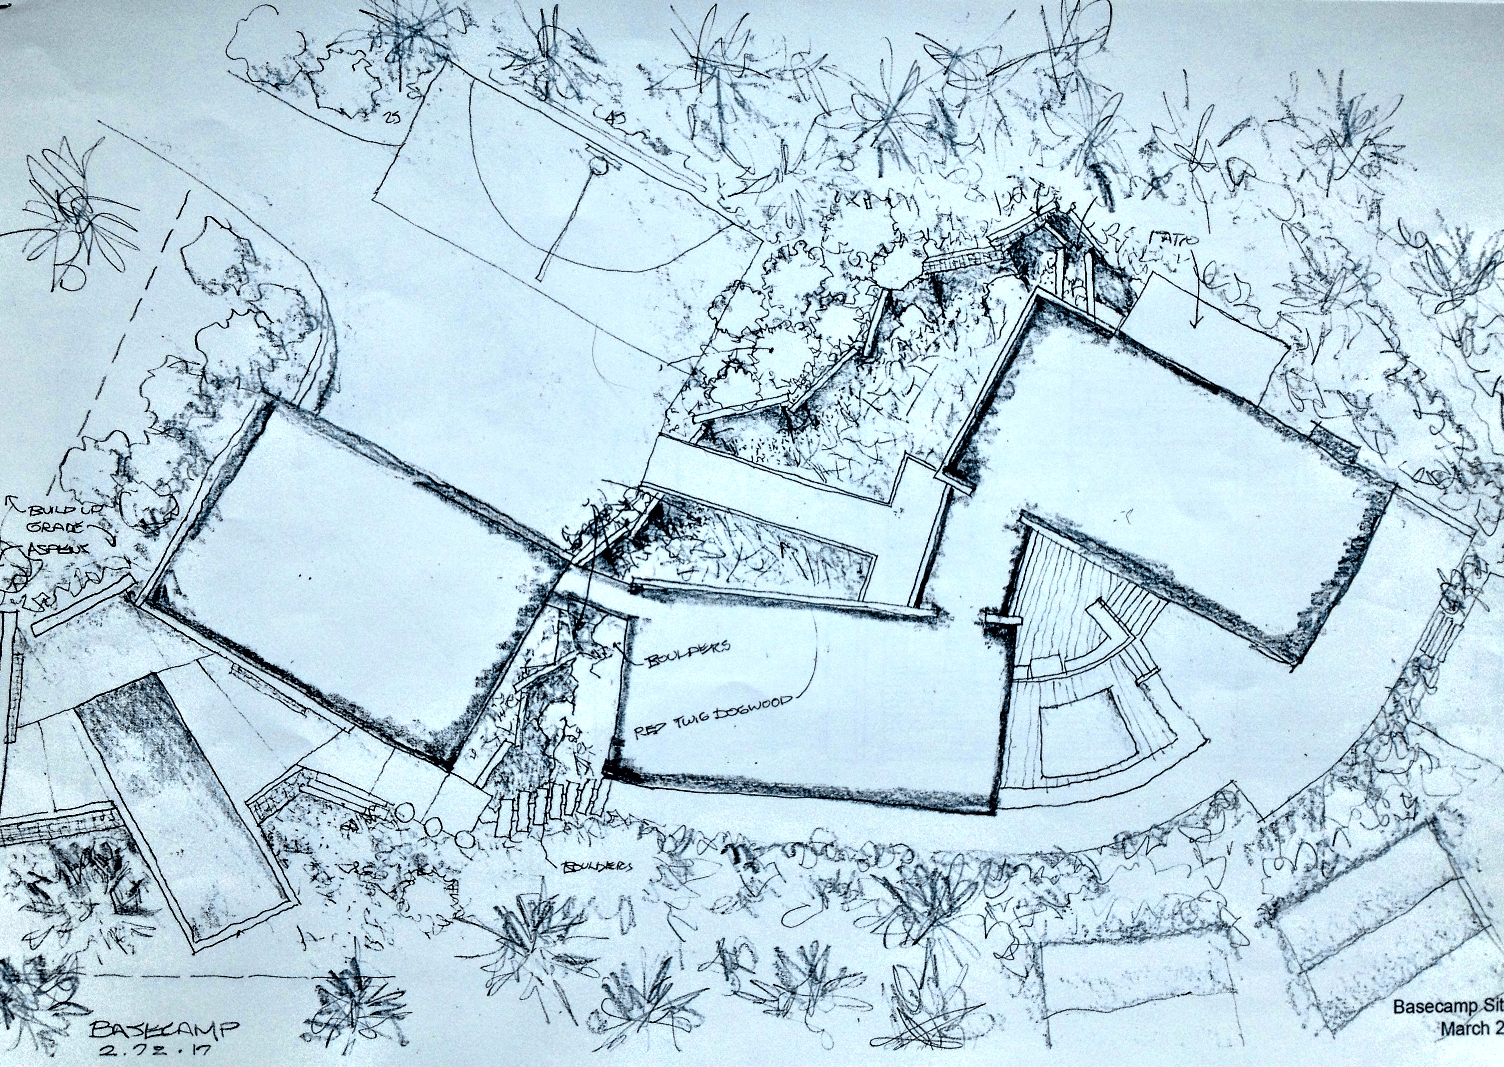 25
45
PATIO
BUILD UP
GRADE
ASPENS
BOULDERS
RED TWIG DOGWOOD
BOULDERS
BASECAMP
2.22.17
Basecamp Sit
March 2